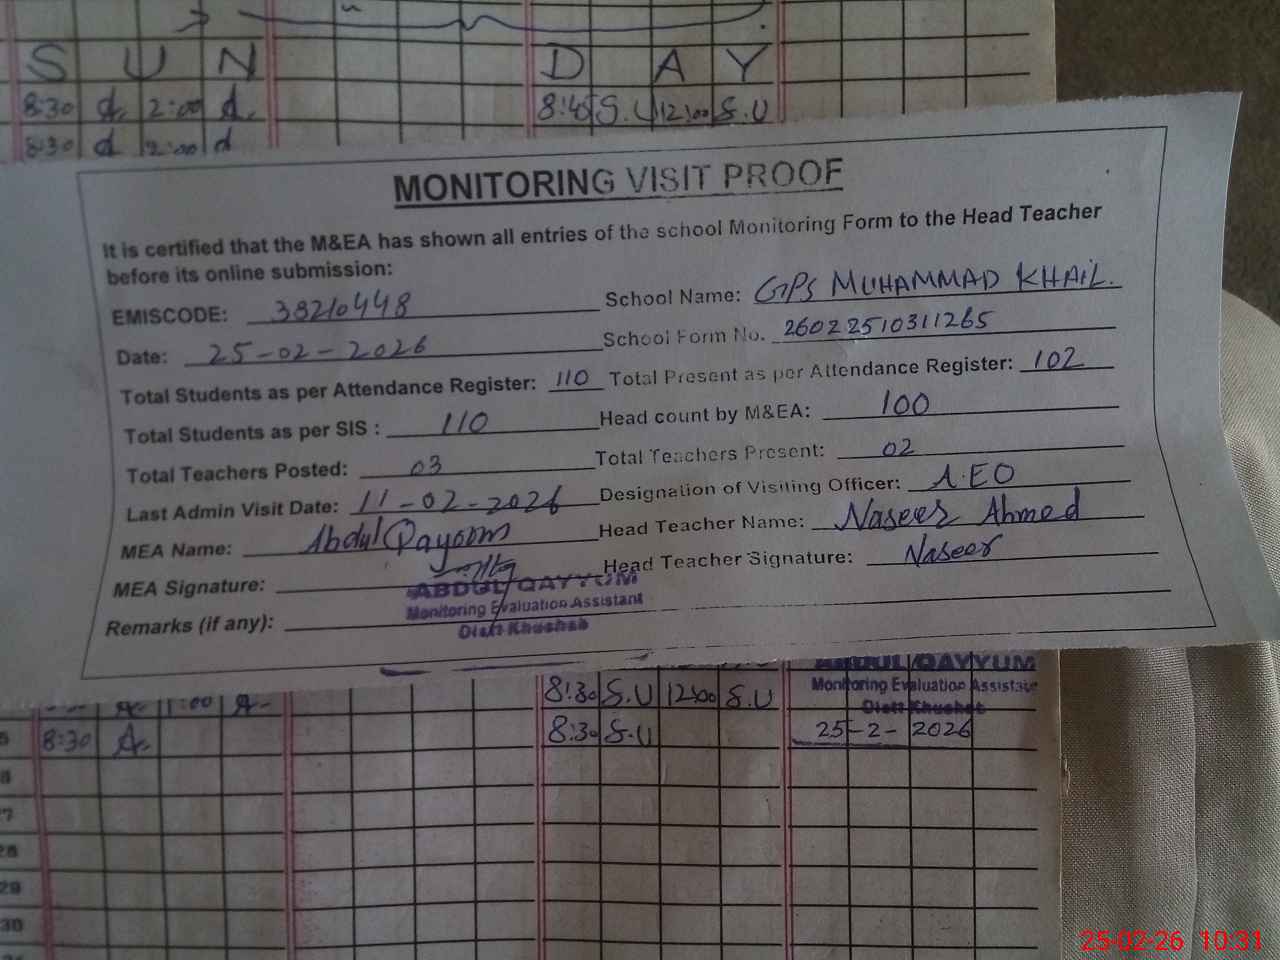 S U N D A Y
8:30 A. 2:00 A. 8:45 S.U 12:00 S.U
8:30 d 2:00 d
MONITORING VISIT PROOF
It is certified that the M&EA has shown all entries of the school Monitoring Form to the Head Teacher
before its online submission:
EMISCODE: 38210448 School Name: GPS MUHAMMAD KHAIL.
Date: 25-02-2026 School Form No. 26022510311265
Total Students as per Attendance Register: 110 Total Present as per Attendance Register: 102
Total Students as per SIS : 110 Head count by M&EA: 100
Total Teachers Posted: 03 Total Teachers Present: 02
Last Admin Visit Date: 11-02-2026 Designation of Visiting Officer: A.EO
MEA Name: Abdul Qayoom Head Teacher Name: Naseer Ahmed
MEA Signature: Head Teacher Signature: Naseer
ABDUL QAYYUM
Monitoring Evaluation Assistant
Distt Khushab
Remarks (if any):
ABDUL QAYYUM
8:30 S.U 12:00 S.U Monitoring Evaluation Assistant
Distt Khushab
5 8:30 A. 8:30 S.U 25-2-2026
28
29
30
25-02-26 10:31